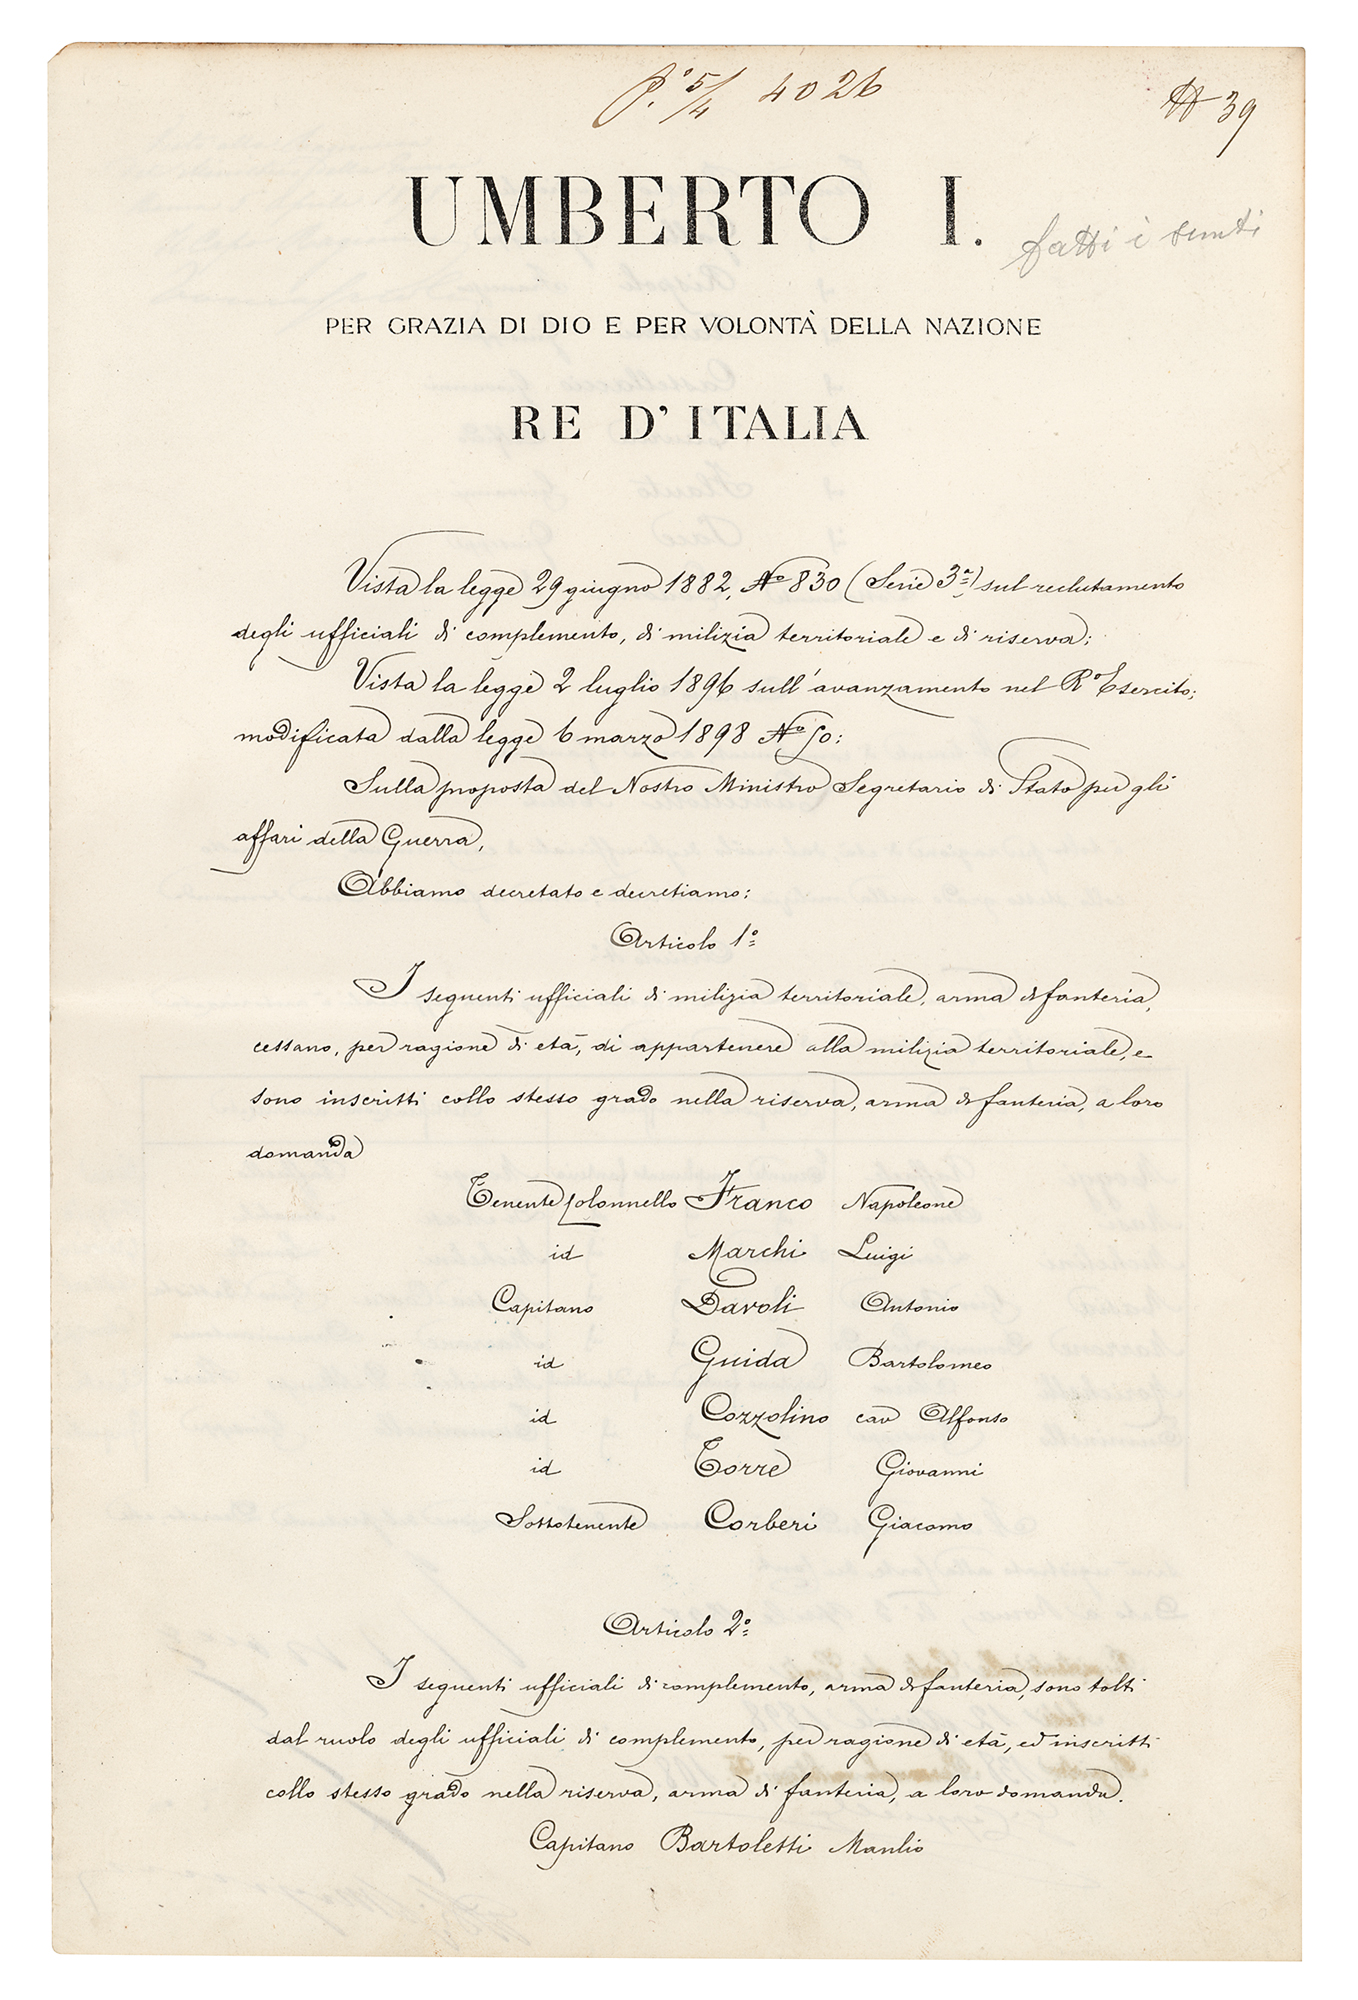 P.º 5/4 4026
N 39
UMBERTO I.
fatti i sunti
PER GRAZIA DI DIO E PER VOLONTÀ DELLA NAZIONE
RE D'ITALIA
Vista la legge 29 giugno 1882, Nº 830 (Serie 3ª) sul reclutamento
degli ufficiali di complemento, di milizia territoriale e di riserva;
Vista la legge 2 luglio 1896 sull'avanzamento nel Rº Esercito,
modificata dalla legge 6 marzo 1898 Nº 50;
Sulla proposta del Nostro Ministro Segretario di Stato per gli
affari della Guerra,
Abbiamo decretato e decretiamo:
Articolo 1º
I seguenti ufficiali di milizia territoriale, arma di fanteria,
cessano, per ragione di età, di appartenere alla milizia territoriale, e
sono inscritti collo stesso grado nella riserva, arma di fanteria, a loro
domanda
Tenente Colonnello Franco Napoleone
id Marchi Luigi
Capitano Davoli Antonio
id Guida Bartolomeo
id Cozzolino cav Alfonso
id Torre Giovanni
Sottotenente Corberi Giacomo
Articolo 2º
I seguenti ufficiali di complemento, arma di fanteria, sono tolti
dal ruolo degli ufficiali di complemento, per ragione di età, ed inscritti
collo stesso grado nella riserva, arma di fanteria, a loro domanda.
Capitano Bartoletti Manlio